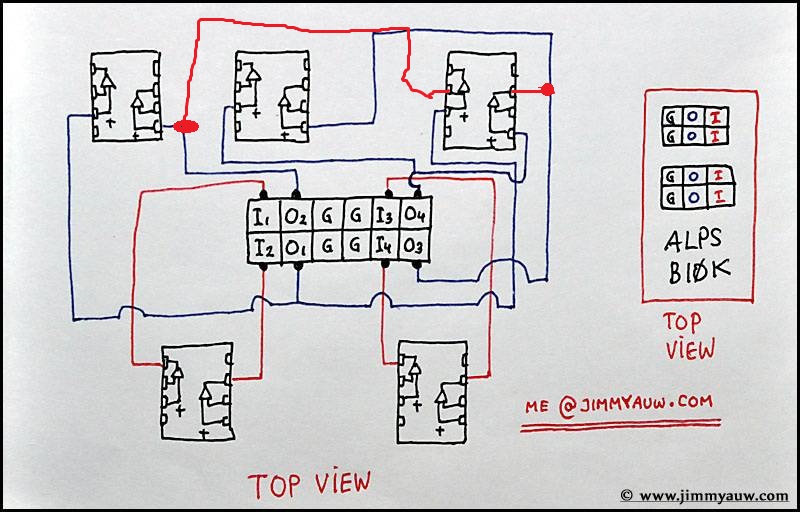 + +
+ +
+ +
I1 O2 G G I3 O4
I2 O1 G G I4 O3
+ +
+ +
TOP VIEW
G O I
G O I
G O I
G O I
ALPS
B10K
TOP
VIEW
ME @JIMMYAUW.COM
© www.jimmyauw.com